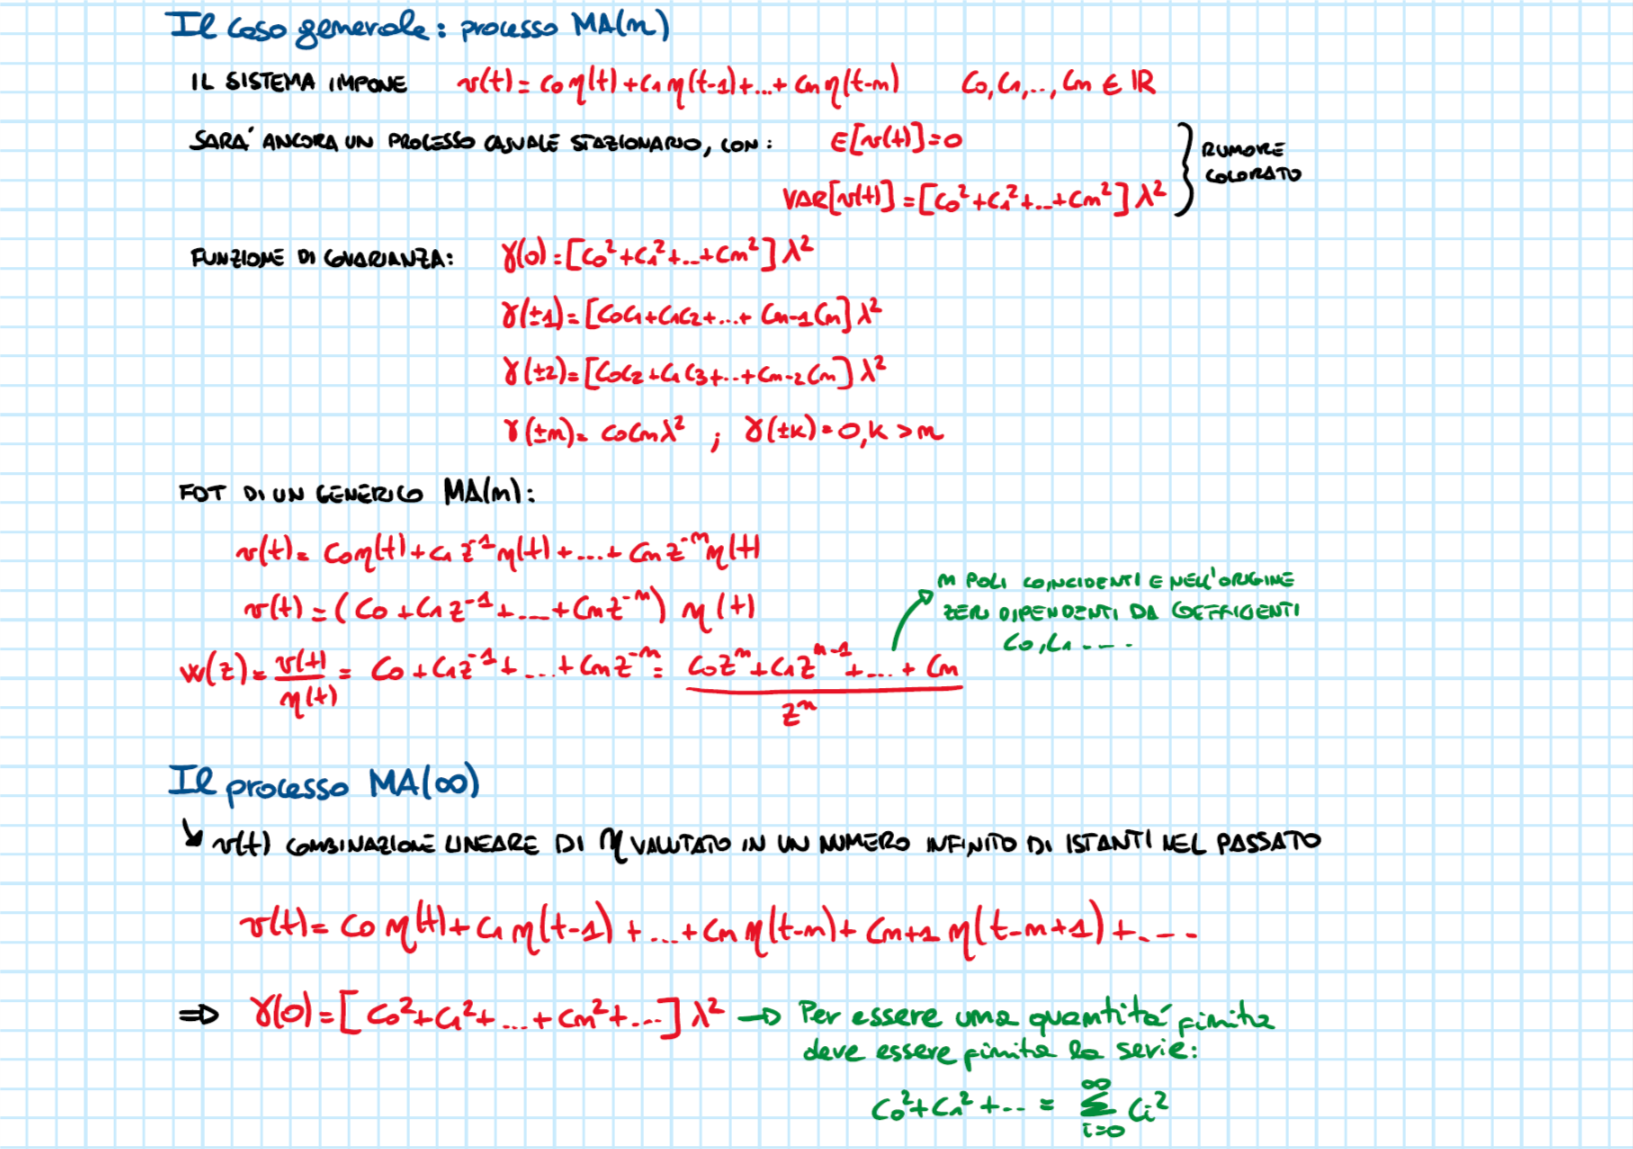 Il caso generale: processo MA(n)
IL SISTEMA IMPONE v(t) = c₀η(t)+c₁η(t-1)+...+cₙη(t-n) c₀,c₁,..,cₙ ∈ ℝ
SARÀ ANCORA UN PROCESSO CASUALE STAZIONARIO, CON: E[v(t)]=0
VAR[v(t)] = [c₀²+c₁²+...+cₙ²] λ²
RUMORE
COLORATO
FUNZIONE DI COVARIANZA: γ(0) = [c₀²+c₁²+...+cₙ²] λ²
γ(±1) = [c₀c₁+c₁c₂+...+cₙ₋₁cₙ] λ²
γ(±2) = [c₀c₂+c₁c₃+...+cₙ₋₂cₙ] λ²
γ(±n) = c₀cₙλ² ; γ(±k) = 0, k > n
FDT DI UN GENERICO MA(n):
v(t) = c₀η(t) + c₁z⁻¹η(t) + .... + cₙz⁻ⁿη(t)
v(t) = (c₀ + c₁z⁻¹ + .... + cₙz⁻ⁿ) η(t)
W(z) = v(t)/η(t) = c₀ + c₁z⁻¹ + ... + cₙz⁻ⁿ = (c₀zⁿ + c₁zⁿ⁻¹ + .... + cₙ)/zⁿ
n POLI COINCIDENTI E NELL'ORIGINE
ZERI DIPENDENTI DA COEFFICIENTI
c₀,c₁ ....
Il processo MA(∞)
↘ v(t) COMBINAZIONE LINEARE DI η VALUTATO IN UN NUMERO INFINITO DI ISTANTI NEL PASSATO
v(t) = c₀η(t) + c₁η(t-1) + ... + cₙη(t-n) + cₙ₊₁η(t-n+1) + ....
⇒ γ(0) = [c₀²+c₁²+...+cₙ²+...] λ² → Per essere una quantità finita
deve essere finita la serie:
c₀²+c₁²+... = ∑_{i=0}^{∞} cᵢ²